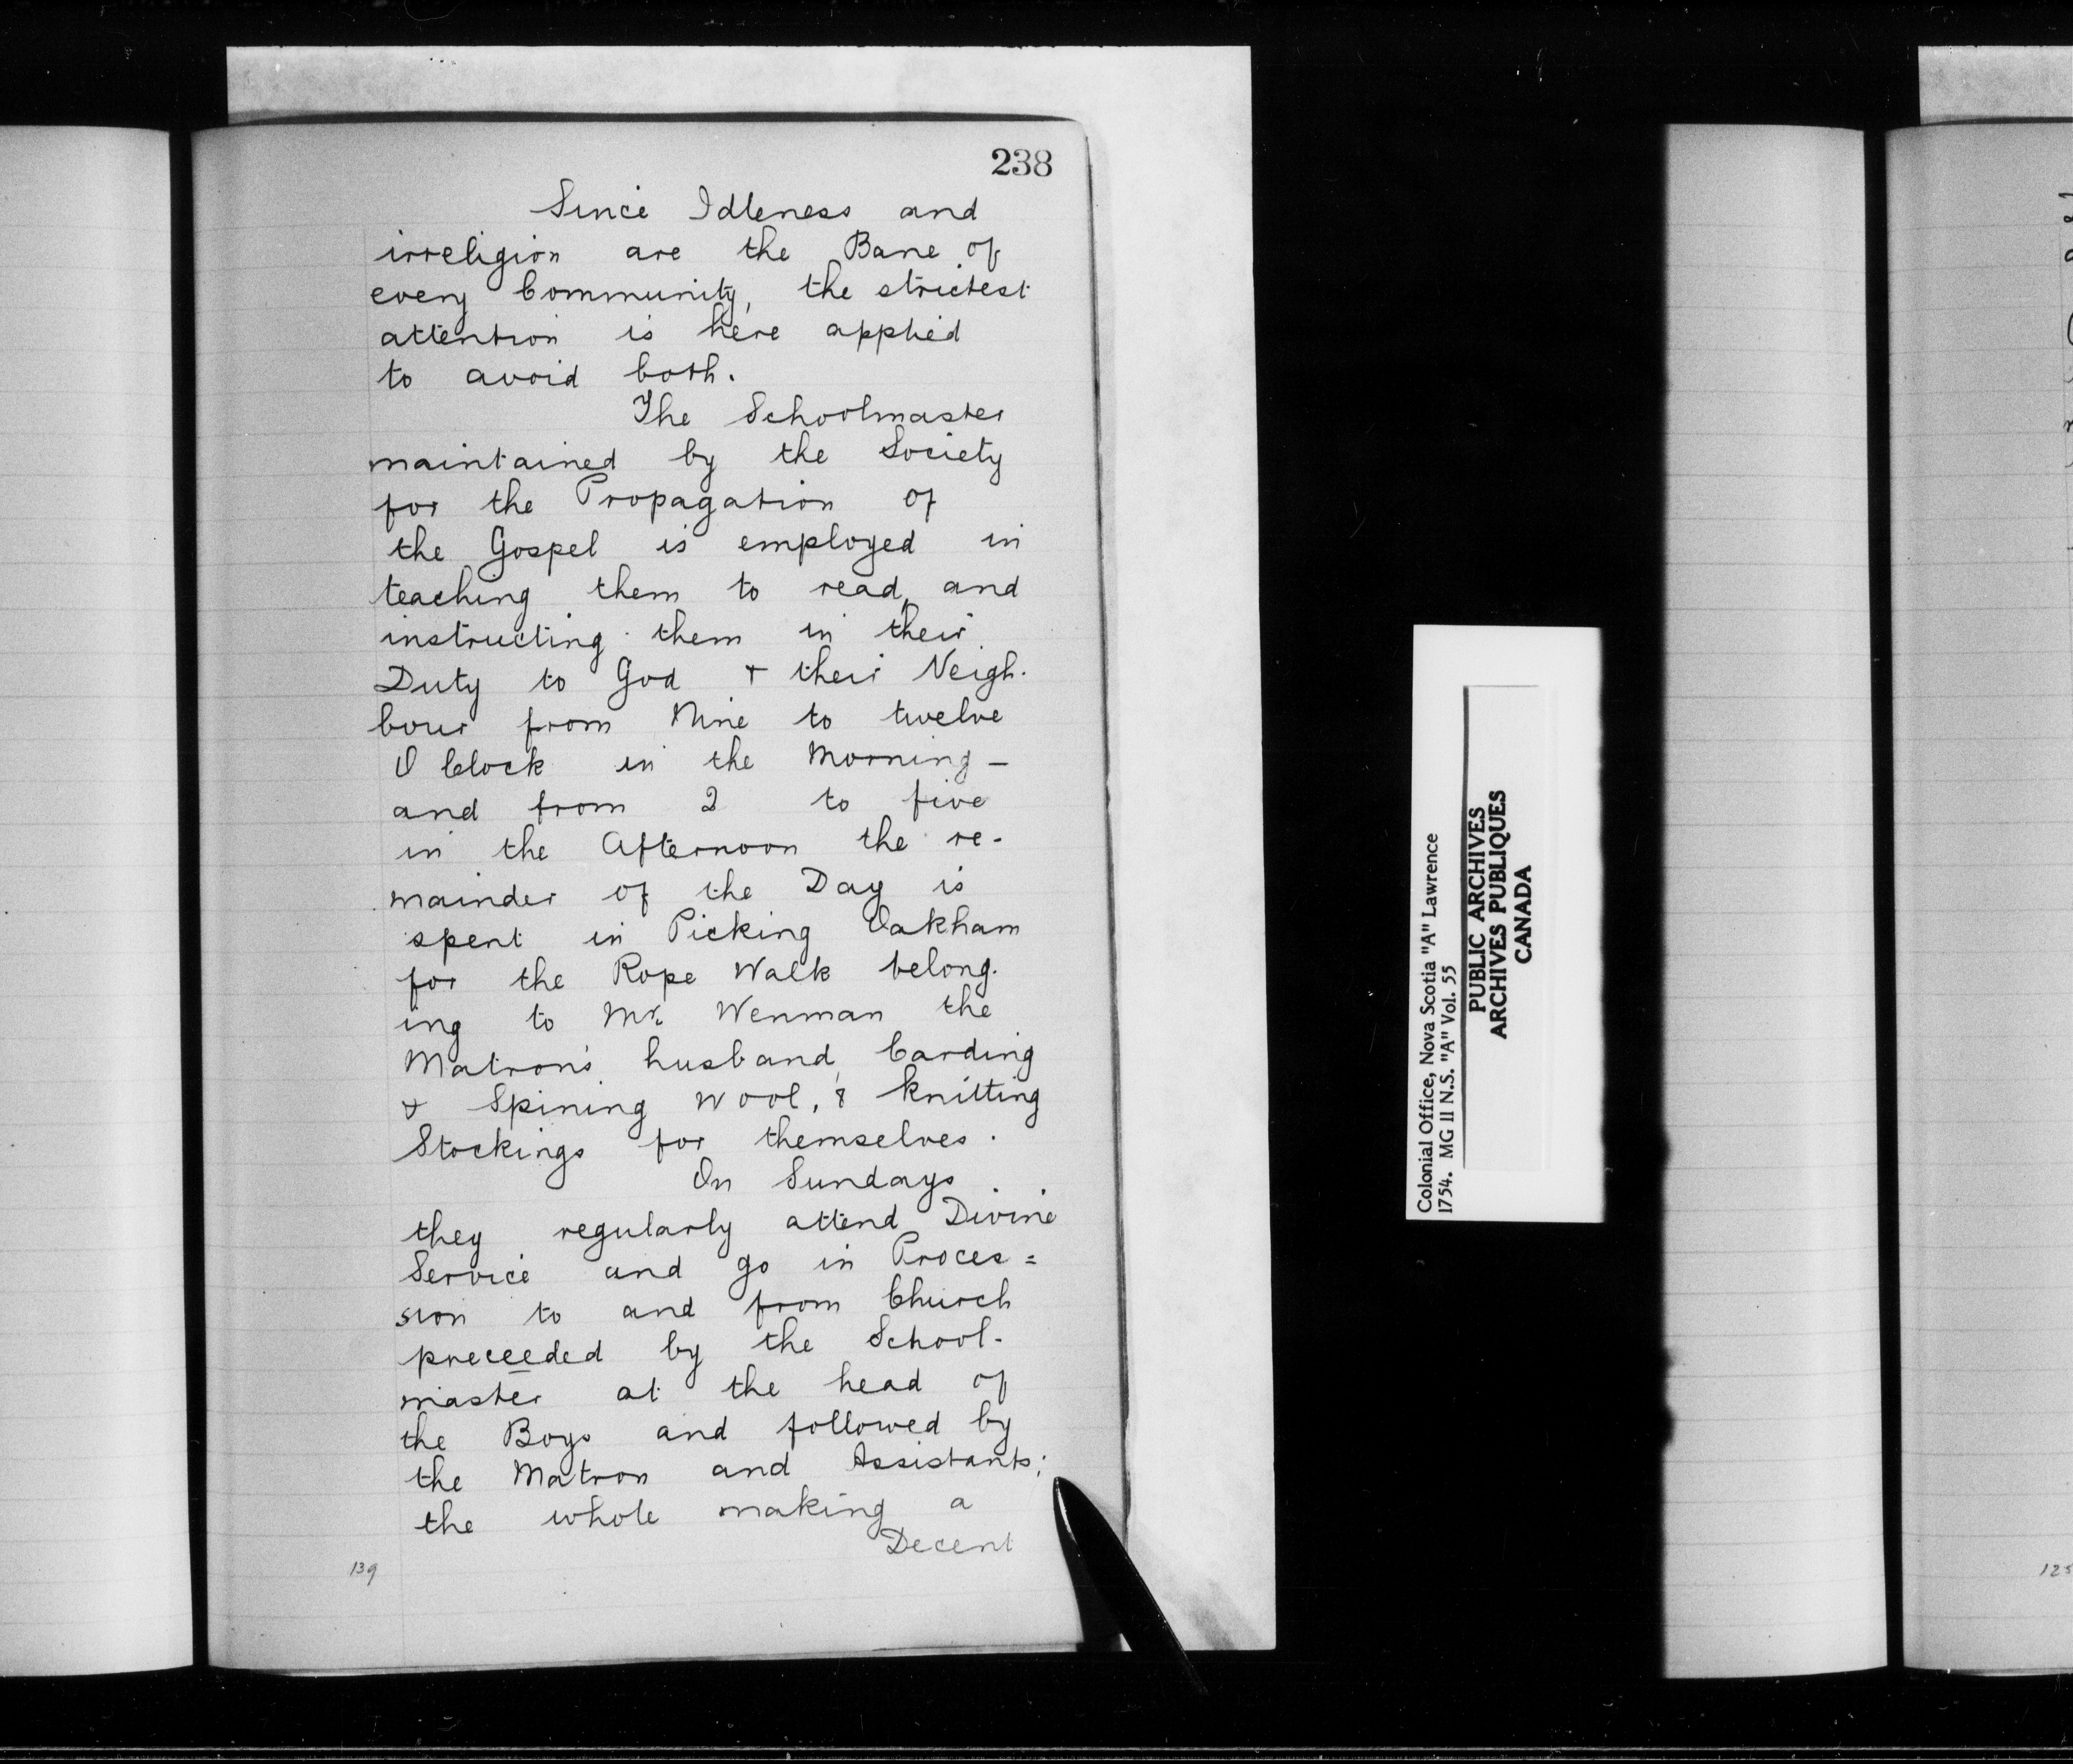 238
Since Idleness and
irreligion are the Bane of
every Community, the strictest
attention is here applied
to avoid both.
The Schoolmaster
maintained by the Society
for the Propagation of
the Gospel is employed in
teaching them to read, and
instructing them in their
Duty to God & their Neigh-
bour from Nine to twelve
O Clock in the Morning -
and from 2 to five
in the Afternoon the re-
mainder of the Day is
spent in Picking Oakham
for the Rope Walk belong-
ing to Mr. Wenman the
Matron's husband, Carding
& Spining Wool, & knitting
Stockings for themselves.
On Sundays
they regularly attend Divine
Service and go in Proces=
sion to and from Church
preceeded by the School-
master at the head of
the Boys and followed by
the Matron and Assistants;
the whole making a
Decent
139
Colonial Office, Nova Scotia "A" Lawrence
1754. MG 11 N.S. "A" Vol. 55
PUBLIC ARCHIVES
ARCHIVES PUBLIQUES
CANADA